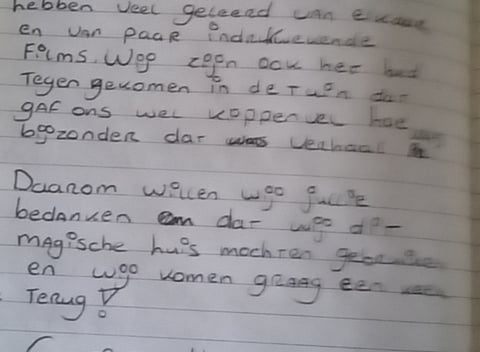 hebben veel geleerd van elkaar
en van paar indrukwekkende
Films. Wij zijn ook het
Tegen gekomen in de Tuin dat
gaf ons wel koppenvel hoe
bijzonder dat was verhaal is
Daarom willen wij jullie
bedanken en dat wij di-
magische huis mochten
en wij komen graag een keer
Terug!